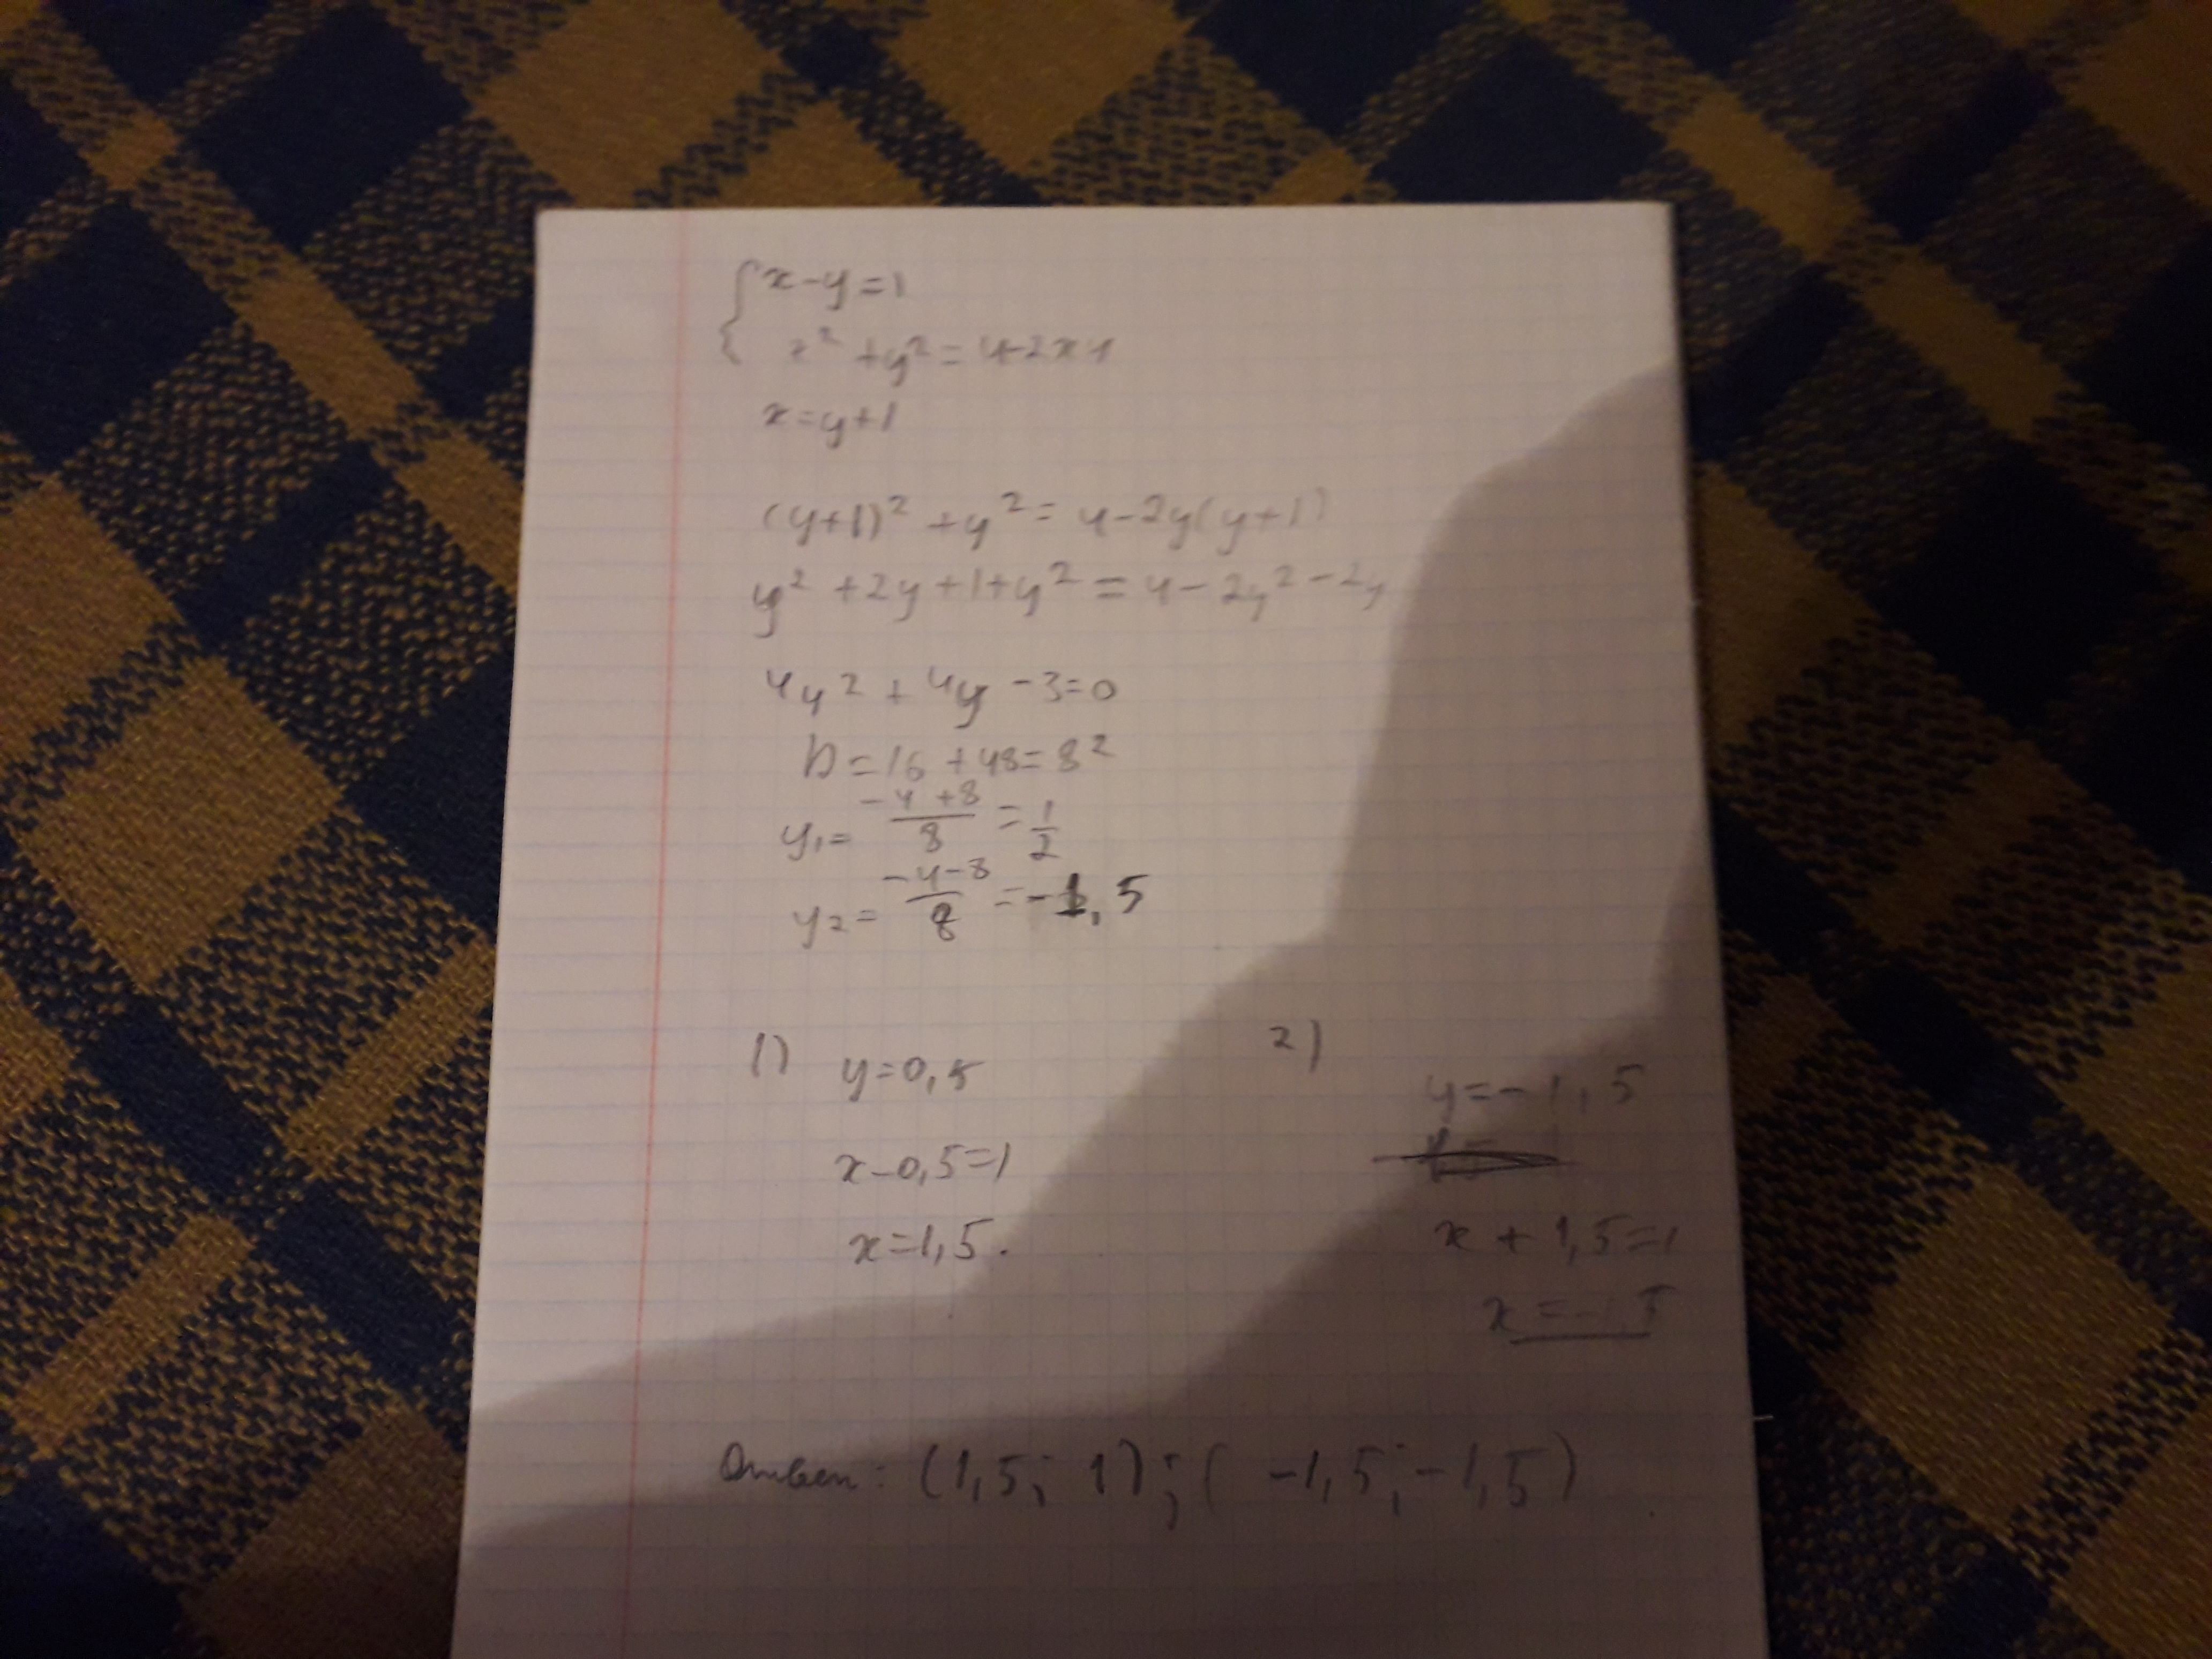 x-y=1
x² + y² = 4-2xy
x=y+1
(y+1)² + y² = 4-2y(y+1)
y² + 2y + 1 + y² = 4 - 2y² - 2y
4y² + 4y - 3=0
D=16+48=8²
y₁= (-4+8)/8 = 1/2
y₂= (-4-8)/8 = -1,5
1) 2)
y=0,5 y=-1,5
x-0,5=1 x+1,5=1
x=1,5. x=-1,5
Ответ: (1,5; 1); ( -1,5; -1,5)